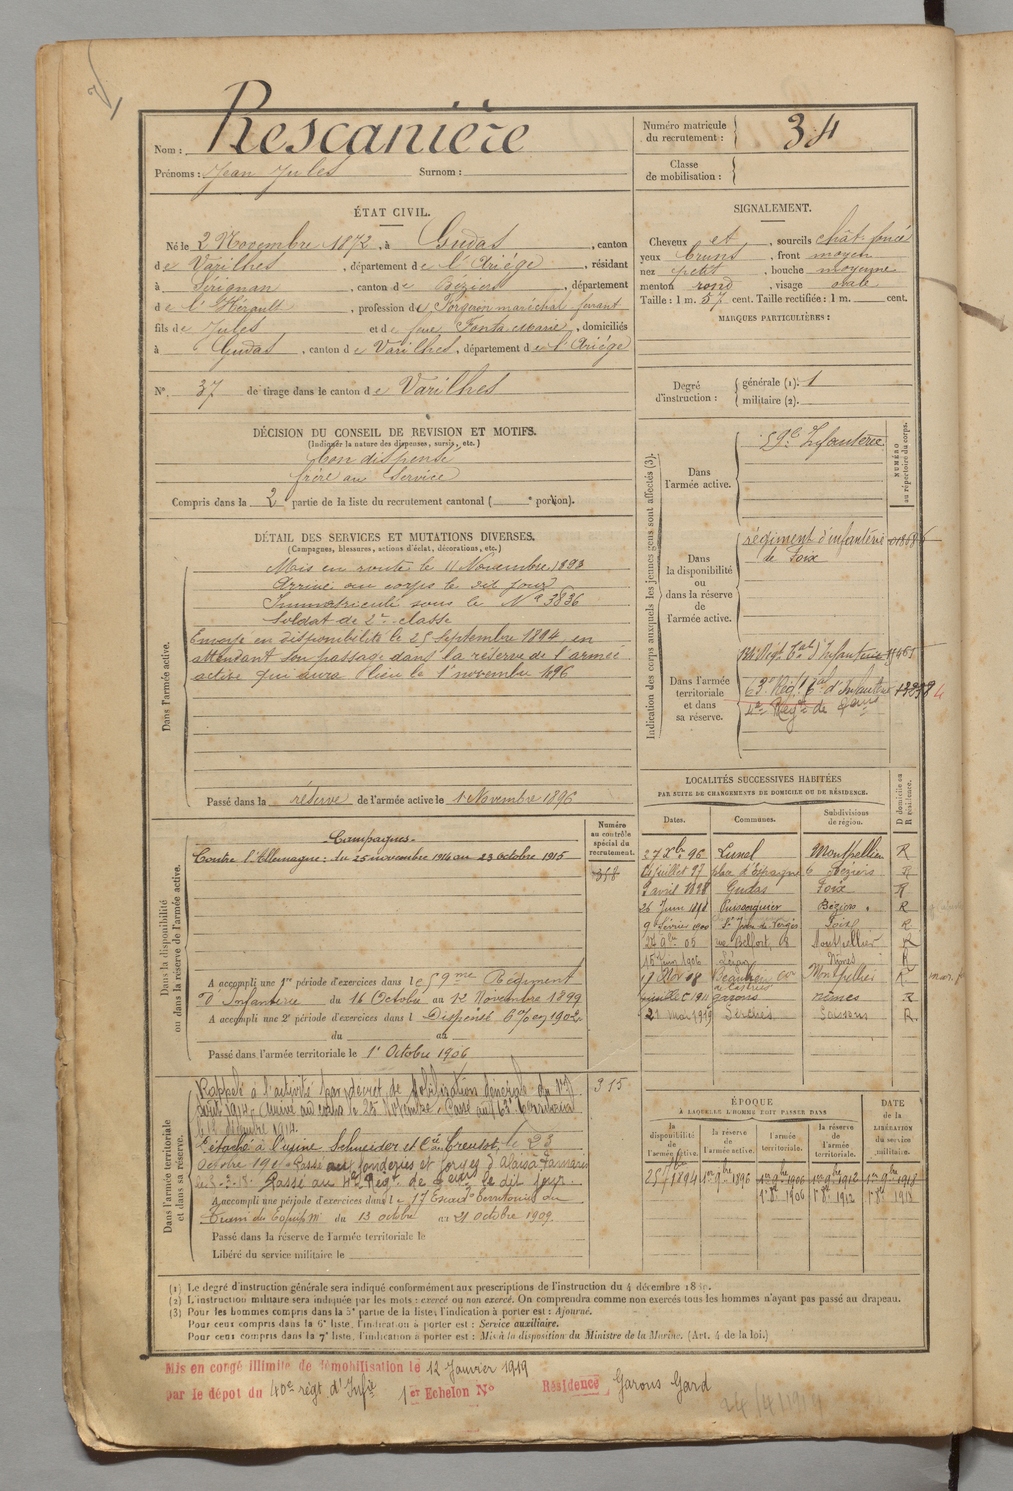 Nom : Rescanière
Prénoms : Jean Jules Surnom :
Numéro matricule du recrutement : 34
Classe de mobilisation :
ÉTAT CIVIL.
Né le 2 Novembre 1872, à Gudas, canton
de Varilhes, département de l'Ariège, résidant
à Sérignan, canton de Béziers, département
de l'Hérault, profession de Forgeron maréchal ferrant
fils de Jules et de feue Fonta Marie, domiciliés
à Gudas, canton de Varilhes, département de l'Ariège
N° 37 de tirage dans le canton de Varilhes
SIGNALEMENT.
Cheveux et, sourcils chât. foncé
yeux bruns, front moyen
nez petit, bouche moyenne
menton rond, visage ovale
Taille : 1 m. 57 cent. Taille rectifiée : 1 m. cent.
MARQUES PARTICULIÈRES :
Degré d'instruction : générale (1). 1
militaire (2).
DÉCISION DU CONSEIL DE REVISION ET MOTIFS.
(Indiquer la nature des dispenses, sursis, etc.)
bon dispensé
frère au service
Compris dans la 2 partie de la liste du recrutement cantonal ( e portion).
DÉTAIL DES SERVICES ET MUTATIONS DIVERSES.
(Campagnes, blessures, actions d'éclat, décorations, etc.)
Dans l'armée active.
Mis en route le 11 Novembre 1893
Arrivé au corps le dit jour
Immatriculé sous le N° 3836
Soldat de 2e classe
Envoyé en disponibilité le 25 Septembre 1894, en
attendant son passage dans la réserve de l'armée
active qui aura lieu le 1er novembre 1896
Passé dans la réserve de l'armée active le 1 Novembre 1896
Indication des corps auxquels les jeunes gens sont affectés (3).
NUMÉRO au répertoire du corps.
Dans l'armée active.
59e Infanterie
Dans la disponibilité ou dans la réserve de l'armée active.
régiment d'infanterie
de Foix
Dans l'armée territoriale et dans sa réserve.
63e Régt Tal d'Infanterie
LOCALITÉS SUCCESSIVES HABITÉES
PAR SUITE DE CHANGEMENTS DE DOMICILE OU DE RÉSIDENCE.
Dates. Communes. Subdivisions de région. D domicile ou R résidence.
27 Xbre 96 Lunel Montpellier R
juillet 97 Béziers R
2 avril 1898 Gudas Foix R
26 Juin 1898 Puisserguier Béziers R
9 Février 1900 St Jean de Verges Foix R
Belfort, Montpellier R
15 Juin 1906 Nîmes R
17 Nov 08 Montpellier R
1911 Garons Nîmes R
21 mai 1915 Soissons R
Dans la disponibilité ou dans la réserve de l'armée active.
Numéro au contrôle spécial du recrutement.
358
Campagnes.
Contre l'Allemagne : du 25 novembre 1914 au 23 octobre 1915
A accompli une 1re période d'exercices dans le 59me Régiment
d'Infanterie du 16 Octobre au 12 Novembre 1899
A accompli une 2e période d'exercices dans l Dispensé 6% en 1902
du au
Passé dans l'armée territoriale le 1er Octobre 1906
Dans l'armée territoriale et dans sa réserve.
315
Rappelé à l'activité par décret de Mobilisation Générale du 1er
août 1914. Arrivé au corps le 25 Novembre. Passé au 63e territorial
le 12 décembre 1914.
Détaché à l'usine Schneider et Cie au Creusot, le 23
Octobre 1915. Passé aux fonderies et forges d'Alais à Tamaris
le 3-3-18. Passé au dit jour.
A accompli une période d'exercices dans le 17e Escadn territorial du
Train des Equip. Mres du 13 octobre au 21 octobre 1909.
Passé dans la réserve de l'armée territoriale le
Libéré du service militaire le
ÉPOQUE
À LAQUELLE L'HOMME DOIT PASSER DANS
DATE de la LIBÉRATION du service militaire.
la disponibilité de l'armée active. la réserve de l'armée active. l'armée territoriale. la réserve de l'armée territoriale.
25 7bre 1894 1er 9bre 1896 1er 9bre 1906 1er 9bre 1912 1er 9bre 1918
1er 8bre 1906 1er 8bre 1912 1er 8bre 1918
(1) Le degré d'instruction générale sera indiqué conformément aux prescriptions de l'instruction du 4 décembre 18
(2) L'instruction militaire sera indiquée par les mots : exercé ou non exercé. On comprendra comme non exercés tous les hommes n'ayant pas passé au drapeau.
(3) Pour les hommes compris dans la 5e partie de la liste, l'indication à porter est : Ajourné.
Pour ceux compris dans la 6e liste, l'indication à porter est : Service auxiliaire.
Pour ceux compris dans la 7e liste, l'indication à porter est : Mis à la disposition du Ministre de la Marine. (Art. 4 de la loi.)
Mis en congé illimité de démobilisation le 12 Janvier 1919
par le dépôt du 40e régt d'Infie 1er Echelon N° Résidence Garons Gard